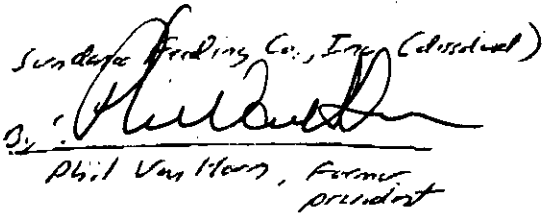 Sundance Feeding Co., Inc (dissolved)
By:
Phil Van Horn, Former
president